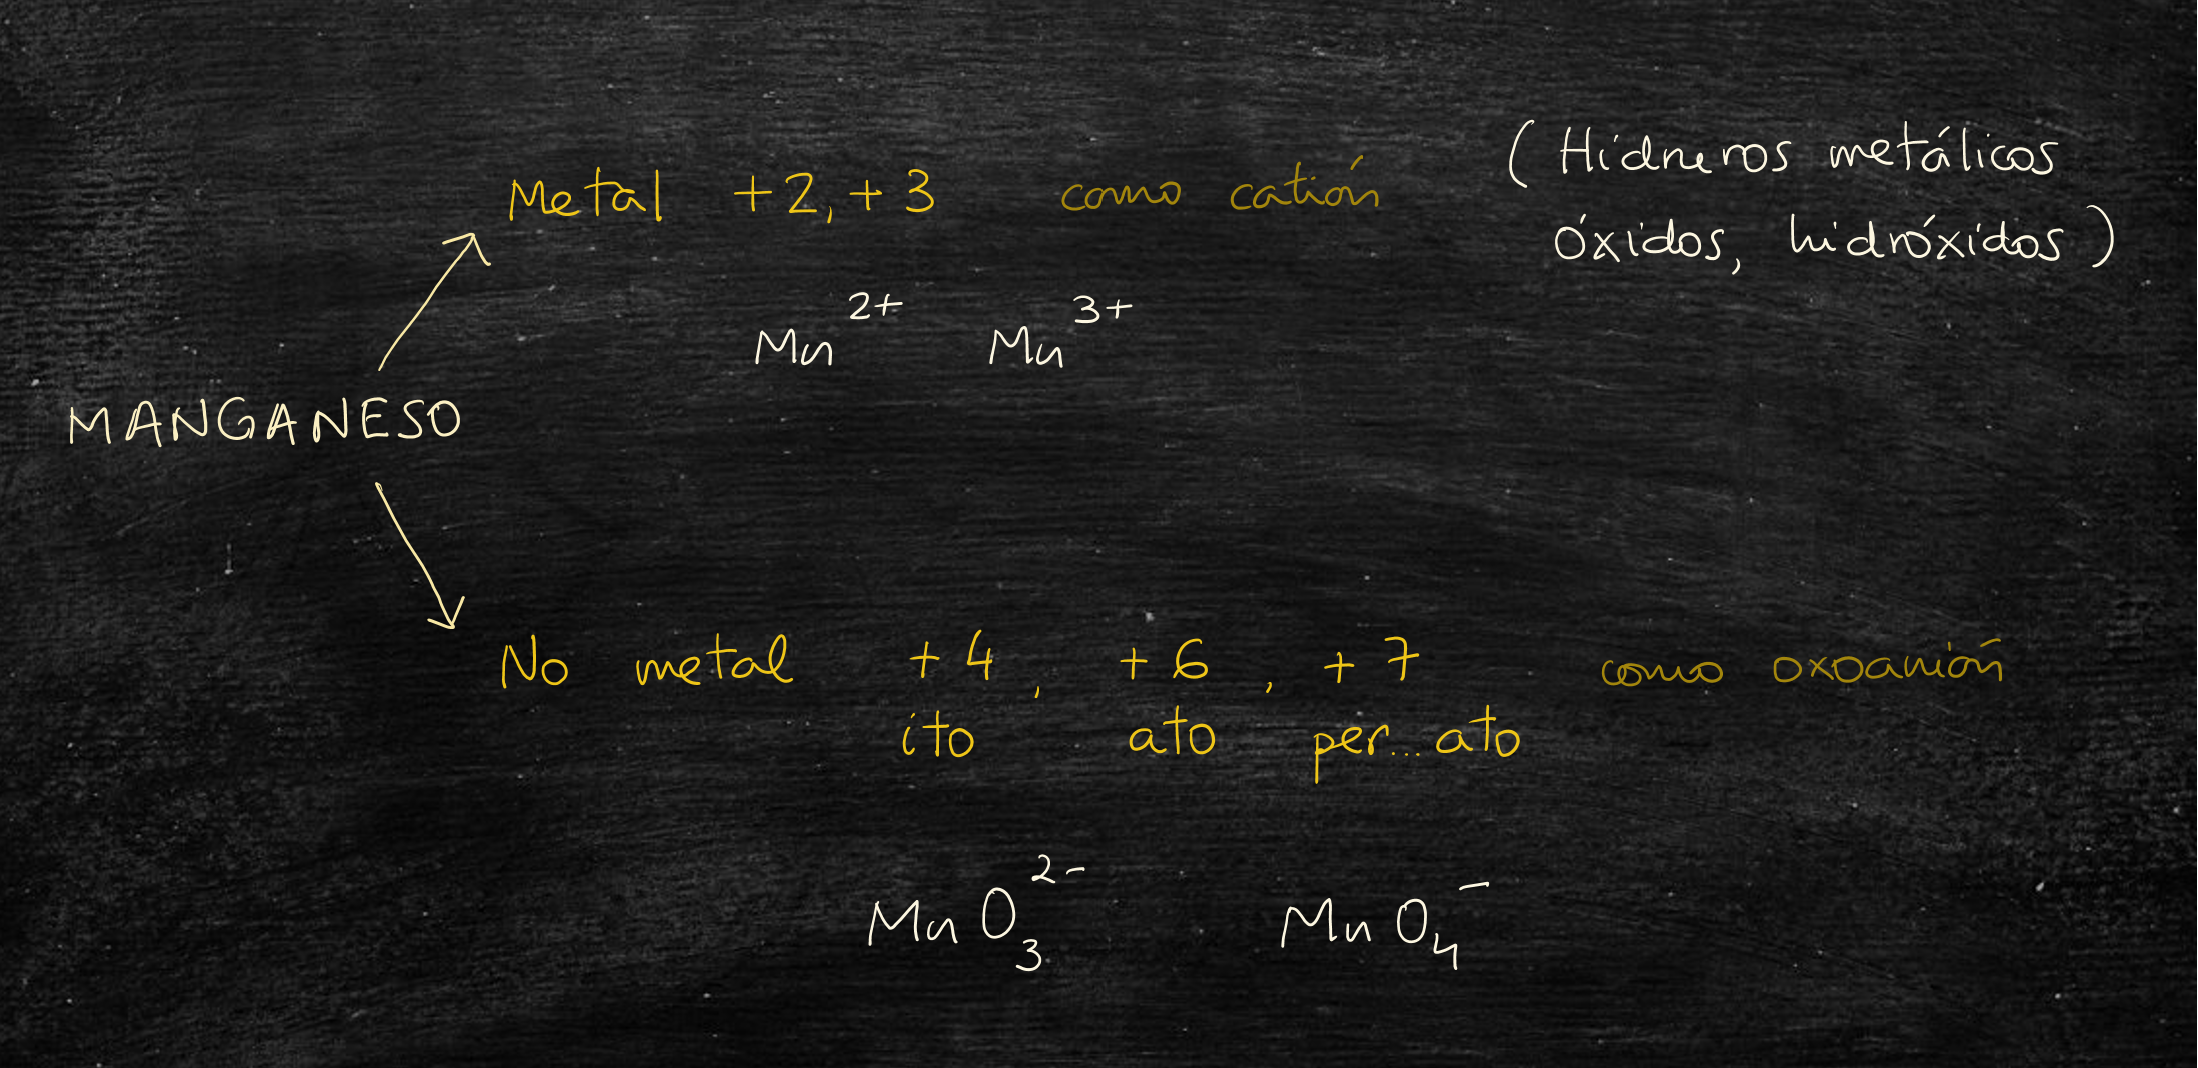 Metal +2, +3 como catión
(Hidruros metálicos
óxidos, hidróxidos)
Mn²⁺ Mn³⁺
MANGANESO
No metal +4, +6, +7 como oxoanión
ito ato per...ato
MnO₃²⁻ MnO₄⁻